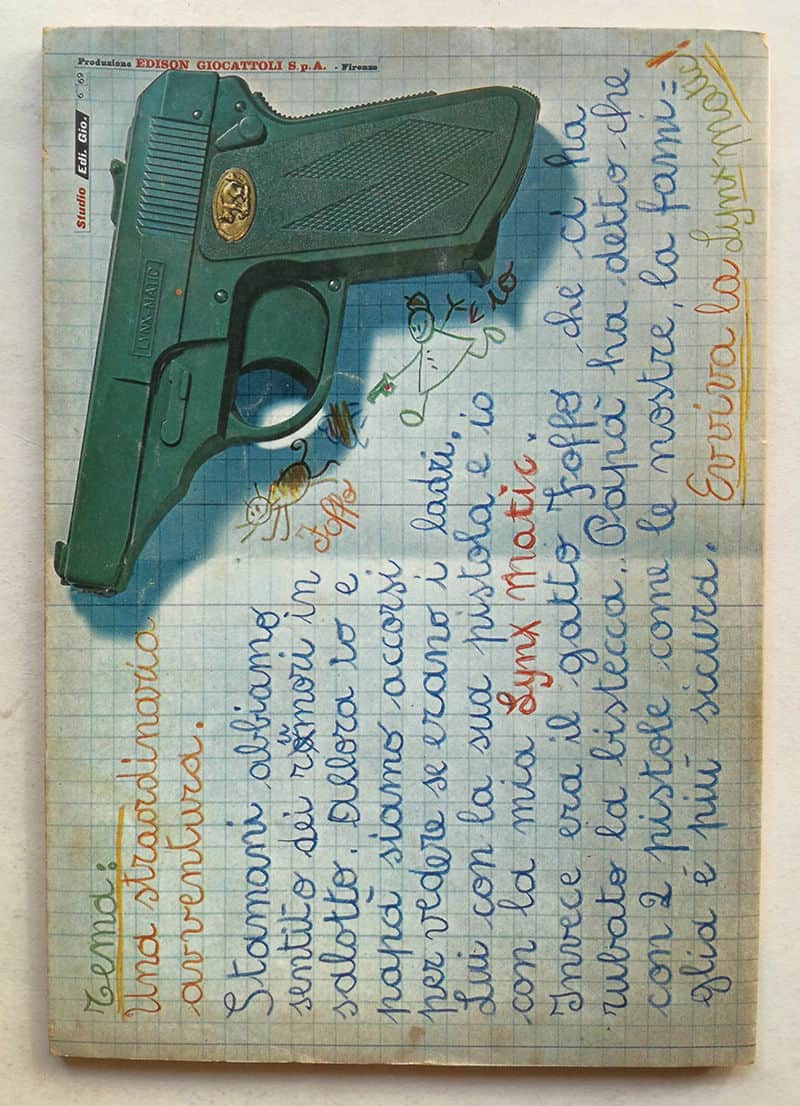 Produzione EDISON GIOCATTOLI S.p.A. - Firenze
Studio Edi. Gio. 6 69
LYNX-MATIC
Tema:
Una straordinaria
avventura.
Stamani abbiamo
sentito dei rumori in
salotto. Allora io e
papà siamo accorsi
per vedere se erano i ladri.
Lui con la sua pistola e io
con la mia Lynx Matic.
Invece era il gatto Foffo che ci ha
rubato la bistecca. Papà ha detto che
con 2 pistole come le nostre, la fami=
glia è più sicura. Evviva la Lynx-matic!
Foffo
io